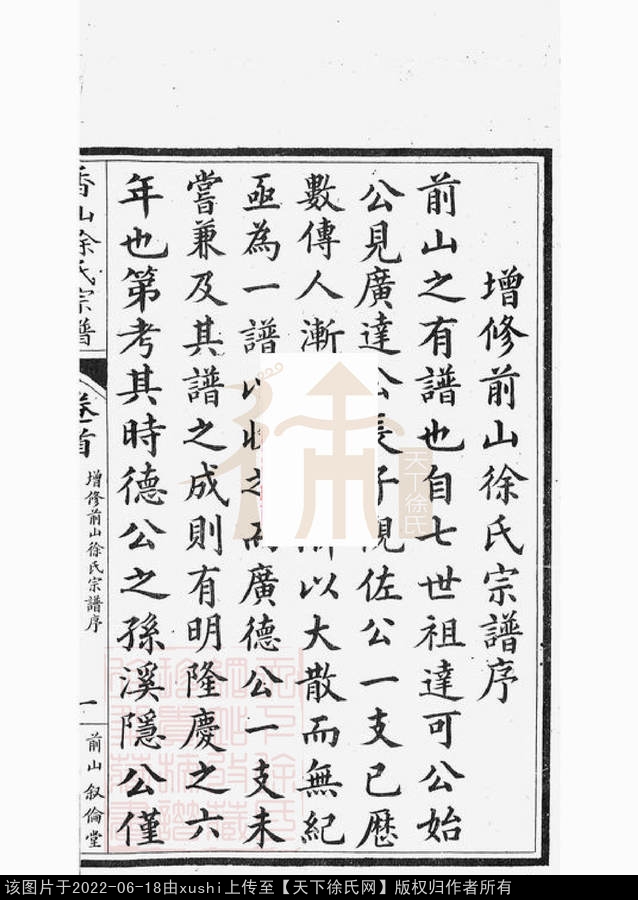 增修前山徐氏宗譜序
前山之有譜也自七世祖達可公始
公見廣達公長子觀佐公一支已歷
數傳人漸所以大散而無紀
亟為一譜以收之而廣德公一支未
嘗兼及其譜之成則有明隆慶之六
年也第考其時德公之孫溪隱公僅
香山徐氏宗譜
卷首
增修前山徐氏宗譜序
一
前山叙倫堂
天下徐氏
该图片于2022-06-18由xushi上传至【天下徐氏网】版权归作者所有